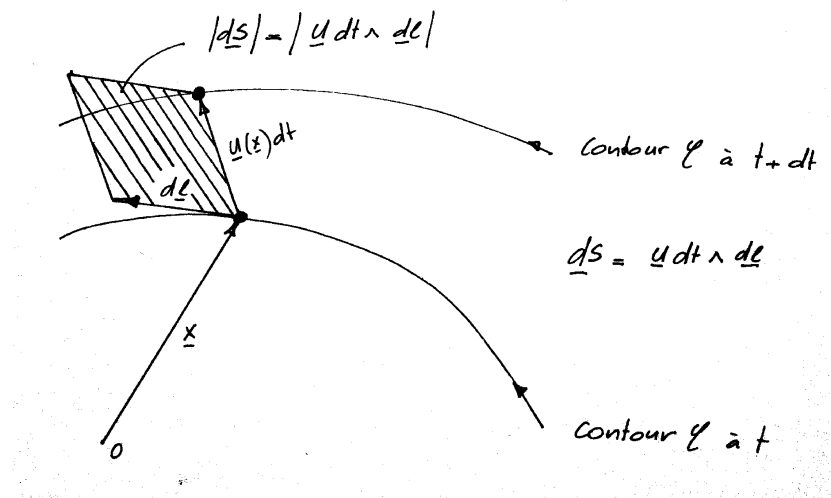 |ds| = | u dt ∧ dl |
u(x) dt
contour φ à t + dt
dl
ds = u dt ∧ dl
x
contour φ à t
0